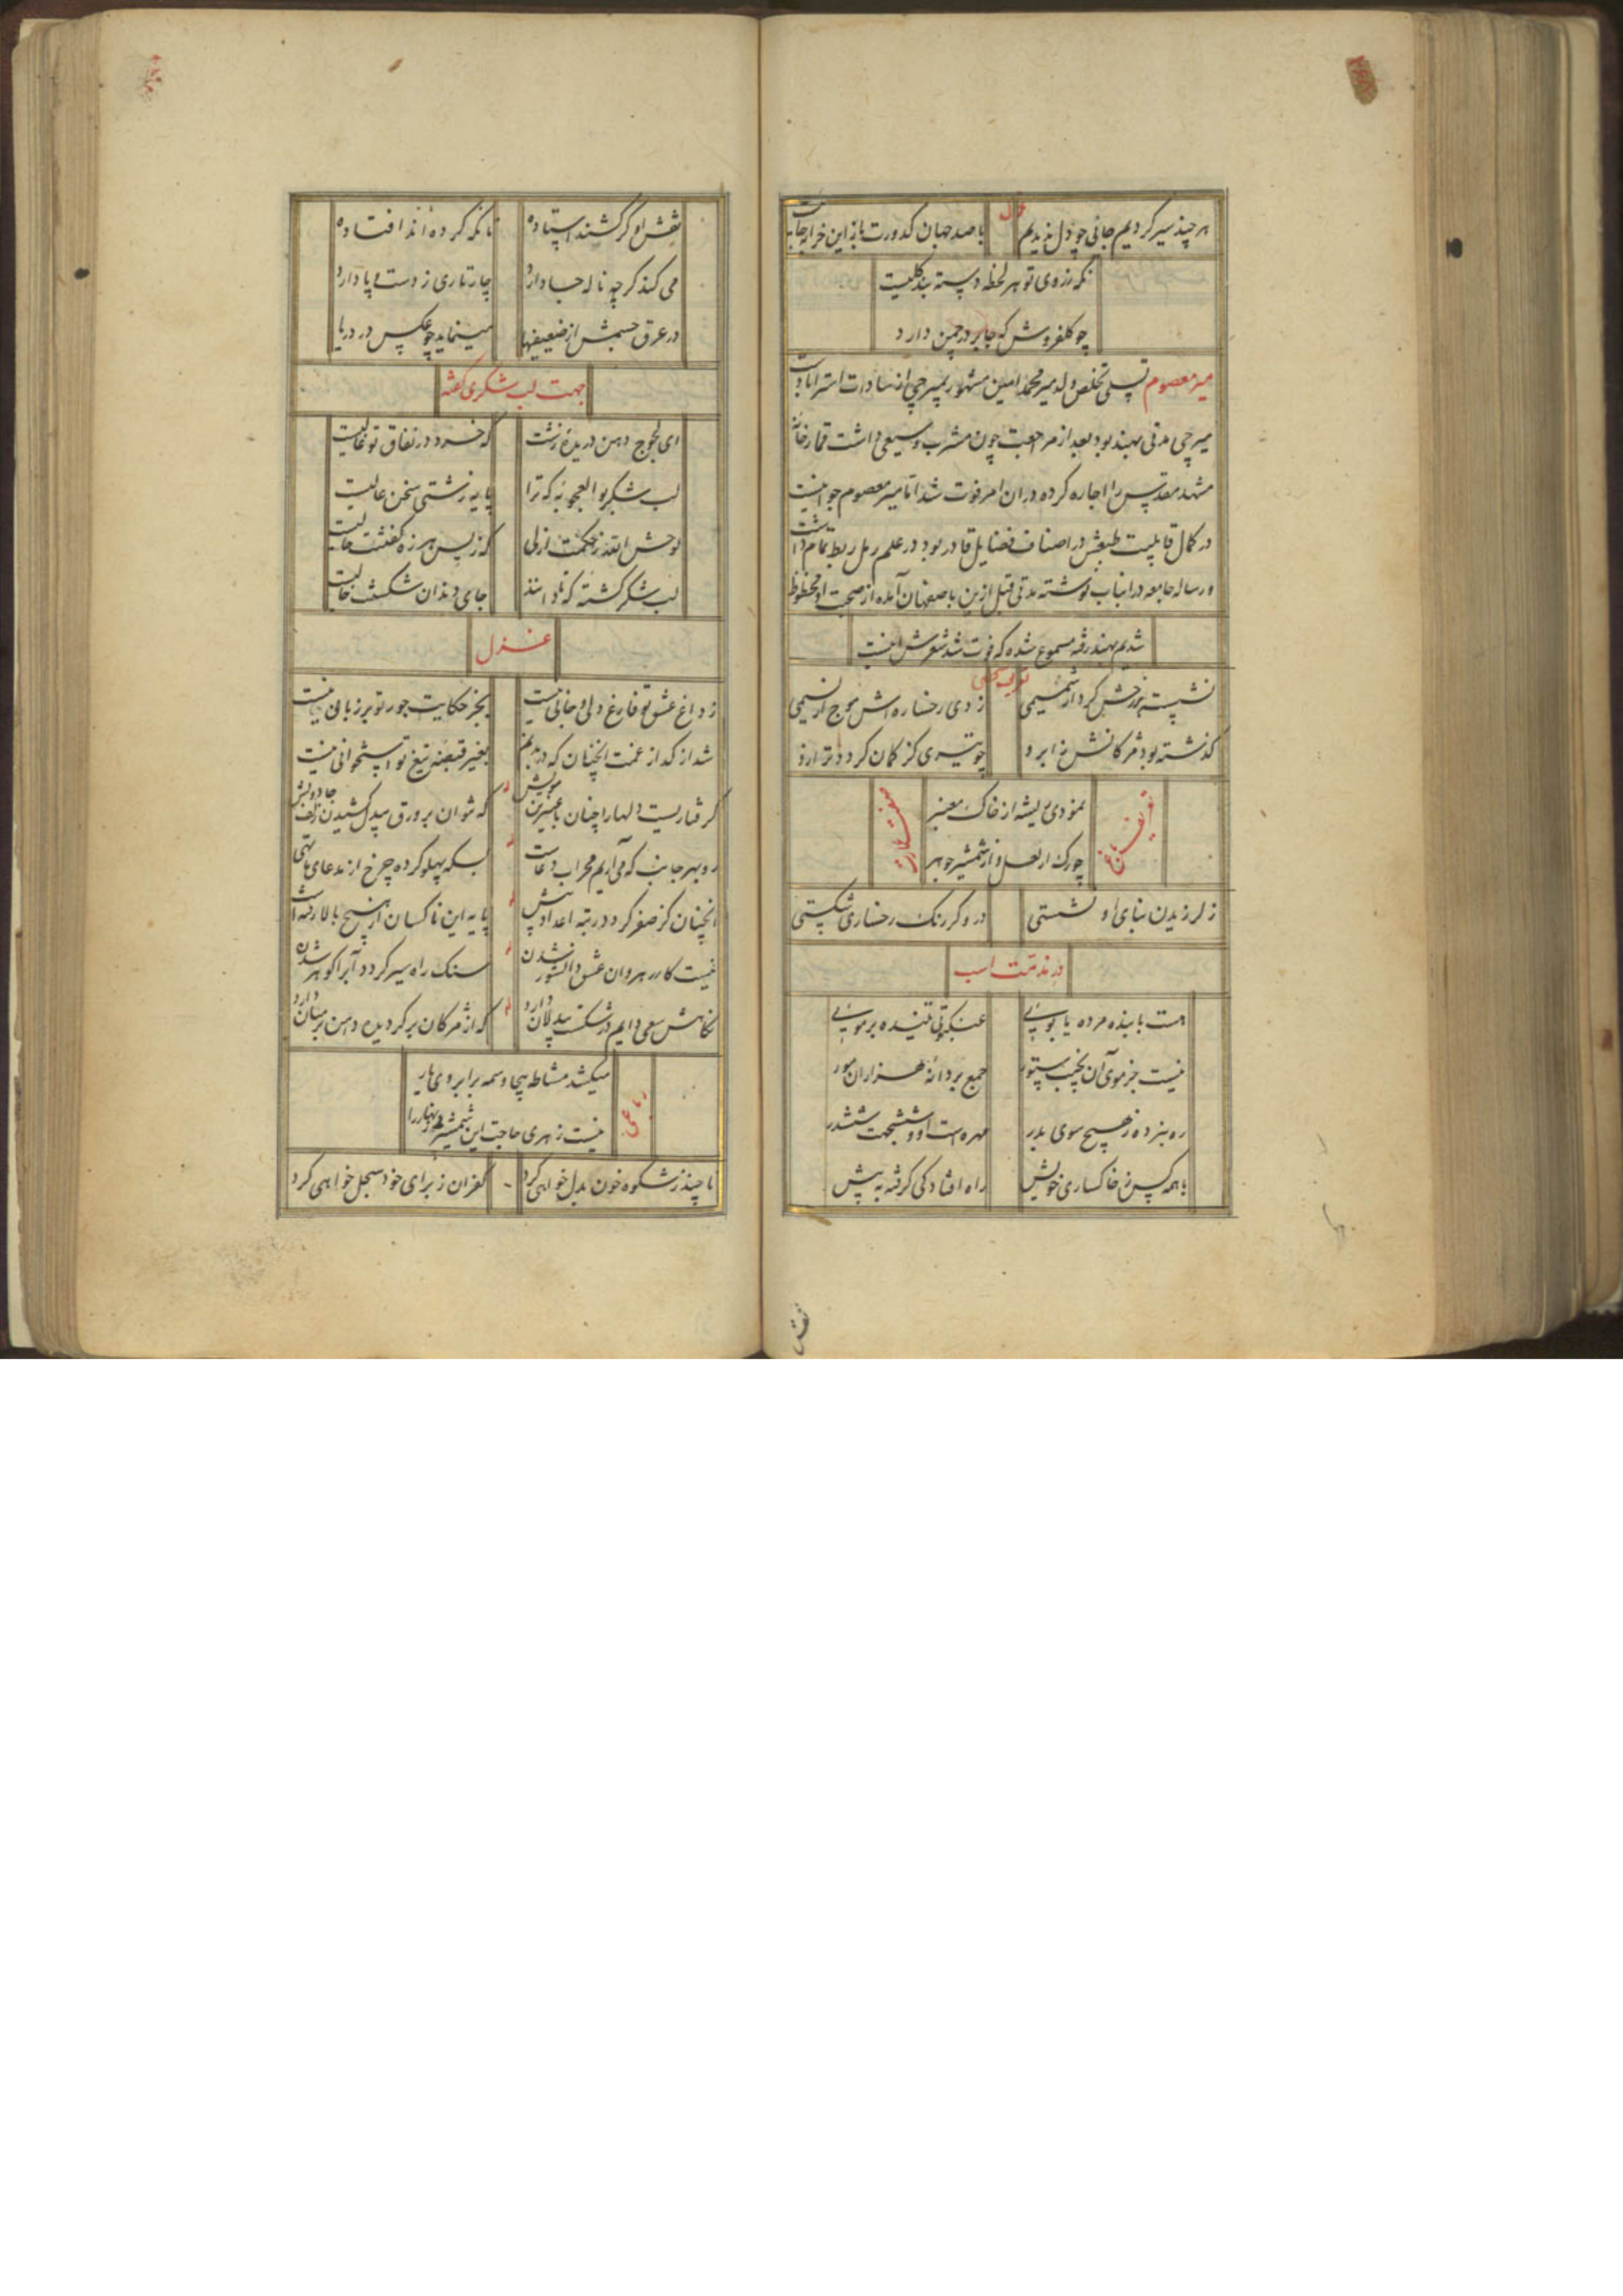 هر چند سیر کردیم جائی چو دل ندیدیم با صد جهان کدورت باز این خرابه جایست
نکه ز روی تو هر لحظه دسته بند کلیست
چو کلفروش که جا بر در چمن دارد
میر معصوم تسلی تخلص ولد میر محمد امین مشهور بمیرجی از سادات استرابادست
میرجی مدتی بهند بود بعد از مراجعت چون مشرب وسیعی داشت قمارخانه
مشهد مقدس را اجاره کرده در ان امر فوت شد اما میر معصوم جوانیست
در کمال قابلیت طبعش در اصناف فضایل قادر بود در علم رمل ربط تمام داشت
و رساله جامعه در انباب نوشته مدتی قبل ازین باصفهان آمده از صحبت او محظوظ
شدیم بهند رفته مسموع شده که فوت شد شعرش اینست
نشیمی ز دی رخساره اش موج از نسیمی
کذشته بود مژکانش ز ابرو چو تیری کز کمان کردد ترازو
نمودی بیشه از خاک معنبر
چو رک از لعل و از شمشیر جوهر
ز لرزیدن بنای او نشستی در و کر رنک رخساری شکستی
در مذمت اسب
هست با بنده مرده یابوئی عنکبوتی تنیده بر موئی
نیست جز موی آن نجیب ستور جمع بر دانه هزاران مور
ره نبرده ز هیچ سوی بدر مهره است او و ششجهت ششدر
با همه کس ز خاکساری خویش راه افتادکی کرفته به پیش
نقش او کر کشند استاده تا نکه کرده اند افتاده
می کند کر چه ناله جا دارد چارتاری ز دست و پا دارد
در عرق جسمش از ضعیفیها مینماید چو عکس در دریا
جهت لب شکری کفته
ای لجوج دهن دریده زشت که خرد در نفاق تو غالیست
لب شکر بوالعجو به که ترا پایه زشتی سخن عالیست
لب شکر کشته که تا دانند جای دندان شکستنت خالیست
غزل
ز داغ عشق تو فارغ دلی و جانی نیست بجز حکایت جور تو بر زبانی نیست
شد از کداز غمت انچنان که در بدنم بغیر قبضه تیغ تو استخوانی نیست
کرفتاریست دلها را چنان با عنبرین مویش که نتوان بر ورق بیدل کشیدن زلف جادویش
رو بهر جانب که می آریم محراب دعاست بسکه پهلو کرده چرخ از مدعای ما تهی
انچنان کز صفر کردد رتبه اعداد بیش پایه این ناکسان از هیچ بالا رفته است
نیست کار رهروان عشق دانشور شدن سنک راه سیر کردد آب را کوهر شدن
نکاهش سعی دایم در شکست بیدلان دارد که از مژکان بر کردیده دامن بر میان دارد
میکشد مشاطه بیجا وسمه بر ابروی یار
نیست زهری حاجت این شمشیر را
رباعی
تا چند ز شکوه خون بدل خواهی کرد کفران ز برای خود سجل خواهی کرد